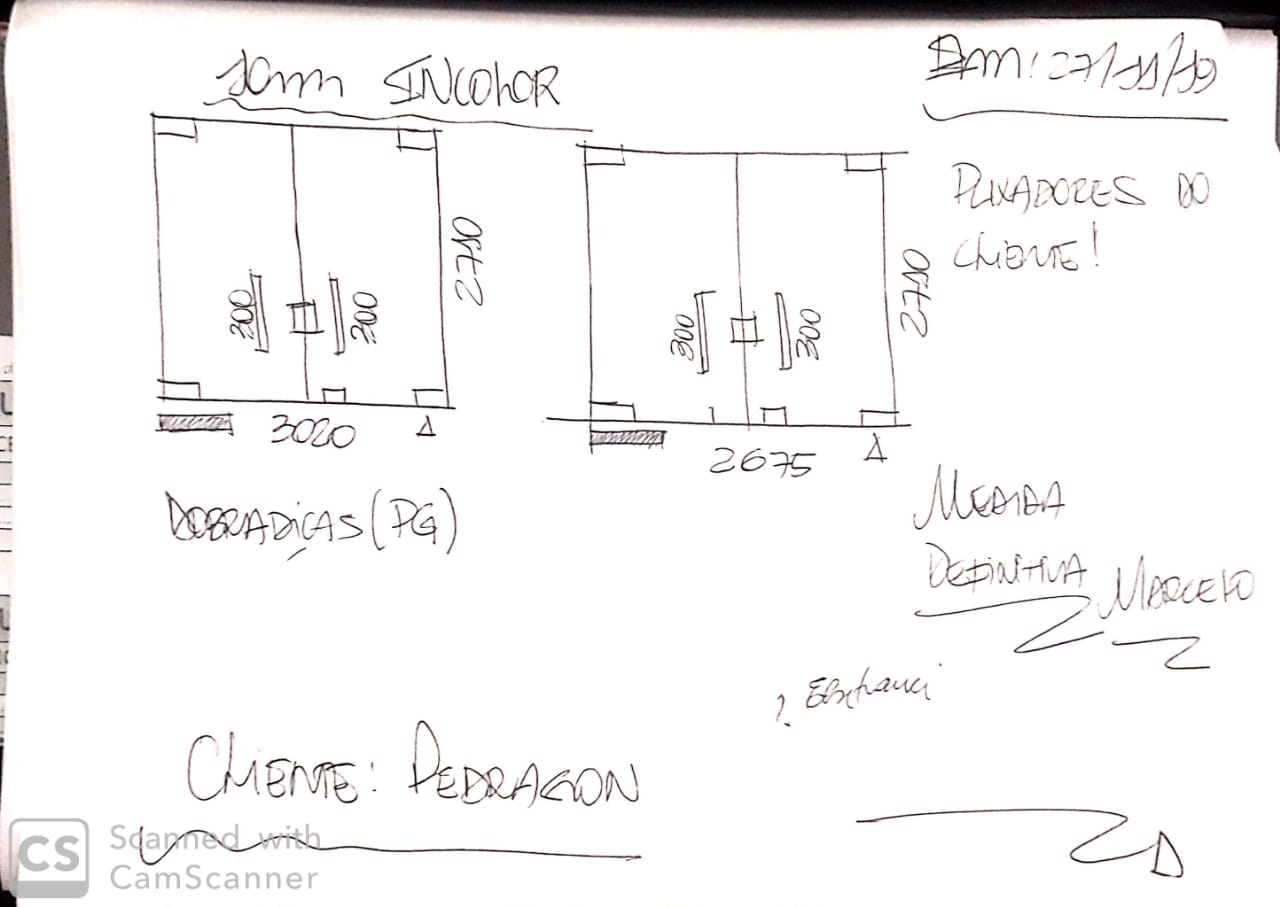 10mm INCOLOR
EM: 27/11/19
PUXADORES DO
CLIENTE!
2710
200
200
3020
2710
300
300
2675
DOBRADIÇAS (PG)
MEDIDA
DEFINITIVA MARCELO
CLIENTE: PEDRAGON
CS Scanned with
CamScanner